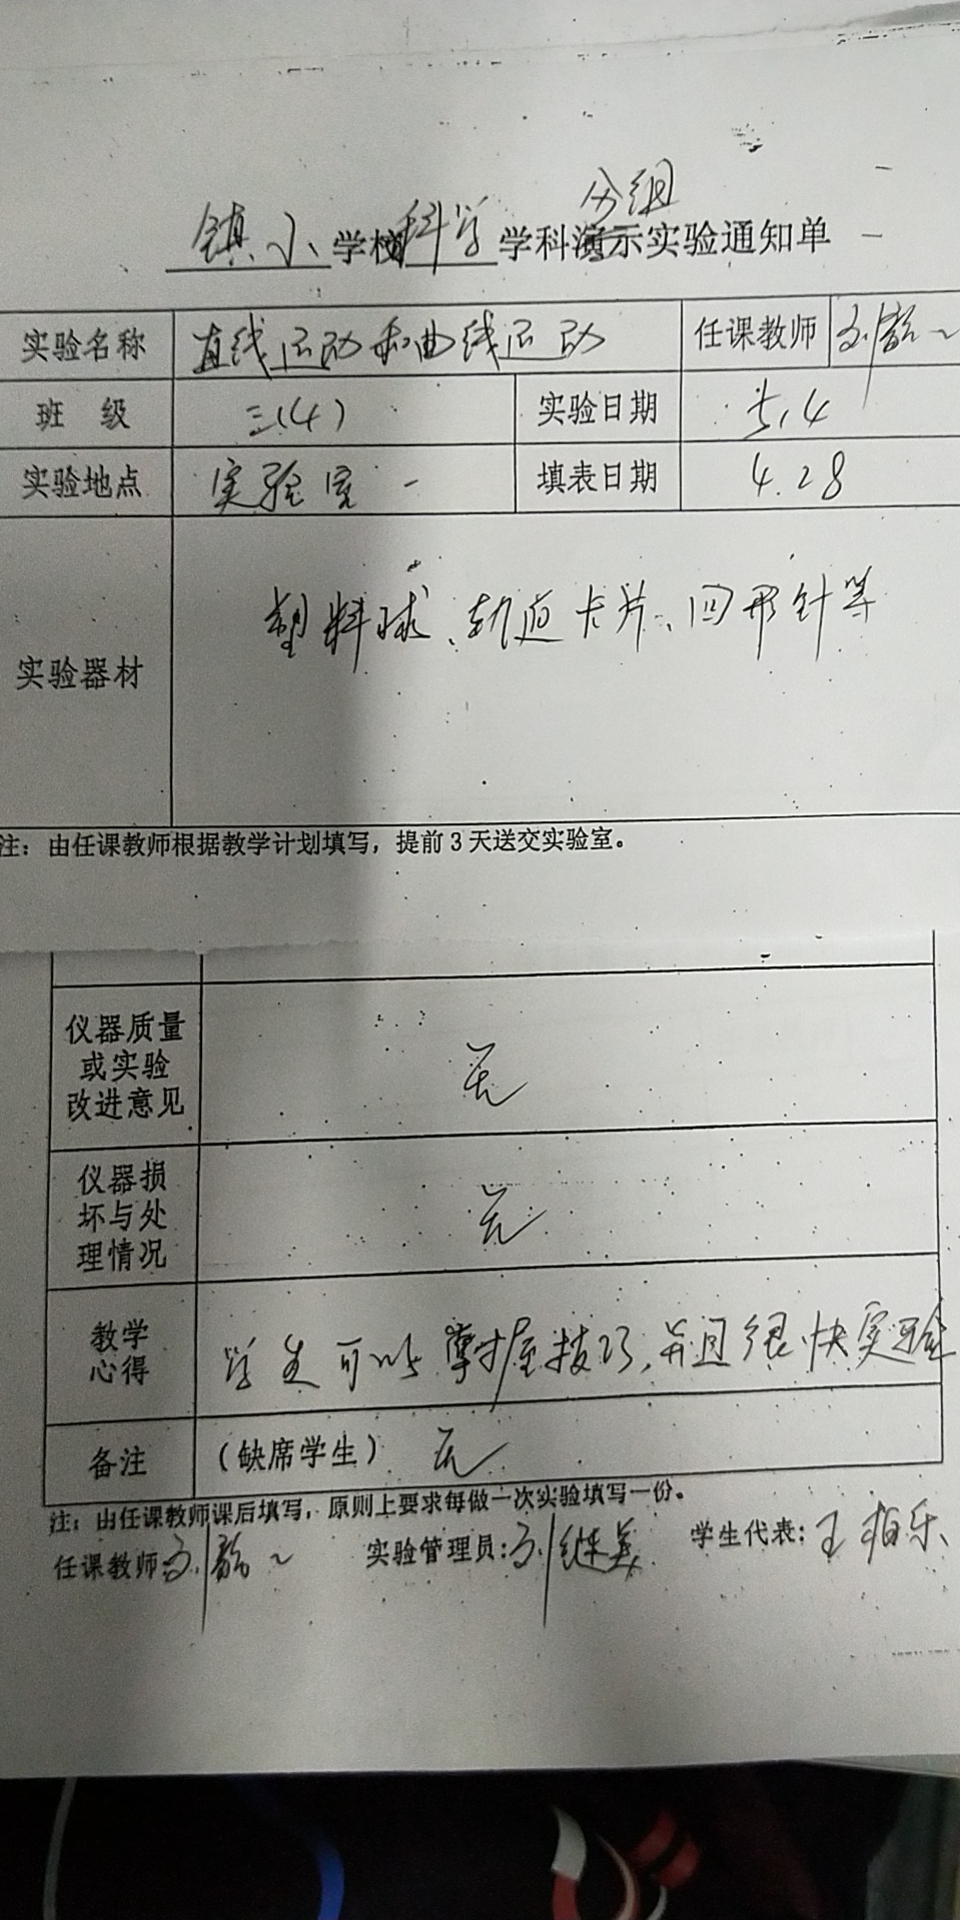 分组
镇小学校科学学科演示实验通知单
实验名称 直线运动和曲线运动 任课教师 刘韵~
班 级 三(4) 实验日期 5.4
实验地点 实验室一 填表日期 4.28
实验器材 塑料球、轨道卡片、回形针等
注：由任课教师根据教学计划填写，提前3天送交实验室。
仪器质量
或实验
改进意见 无
仪器损
坏与处
理情况 无
教学
心得 学生可以掌握技巧，并且很快实验
备注 （缺席学生） 无
注：由任课教师课后填写，原则上要求每做一次实验填写一份。
任课教师 刘韵~ 实验管理员：刘继英 学生代表：王柏乐